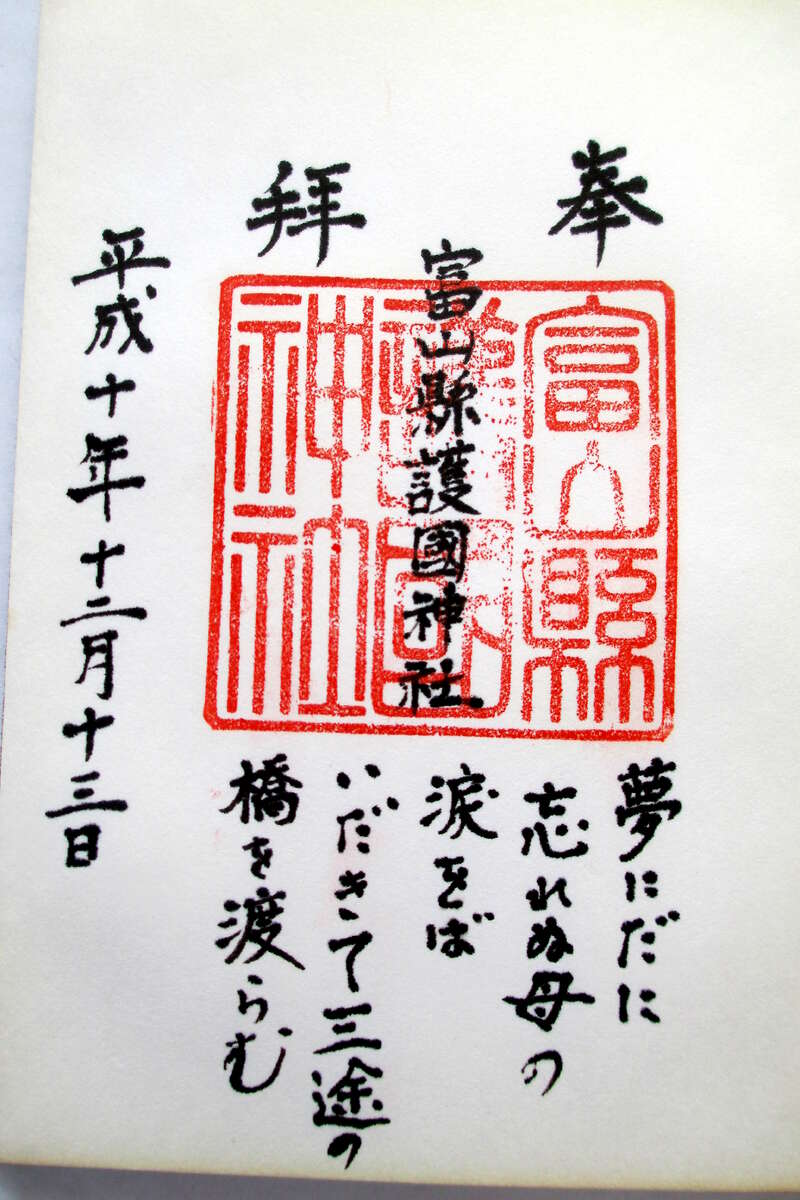 奉
拝
富山縣護國神社
富山縣
護國
神社
夢にだに
忘れぬ母の
涙をば
いだきて三途の
橋を渡らむ
平成十年十二月十三日